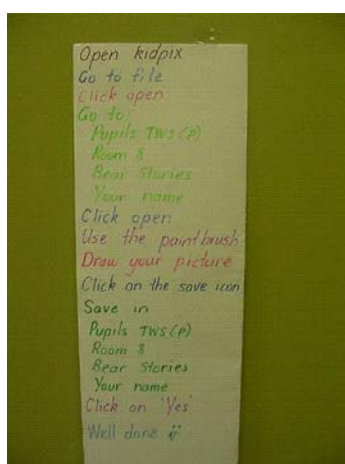 Open kidpix
Go to file
Click open
Go to:
Pupils TWS(P)
Room 8
Bear Stories
Your name
Click open
Use the paintbrush
Draw your picture
Click on the save icon
Save in
Pupils TWS(P)
Room 8
Bear Stories
Your name
Click on 'Yes'
Well done